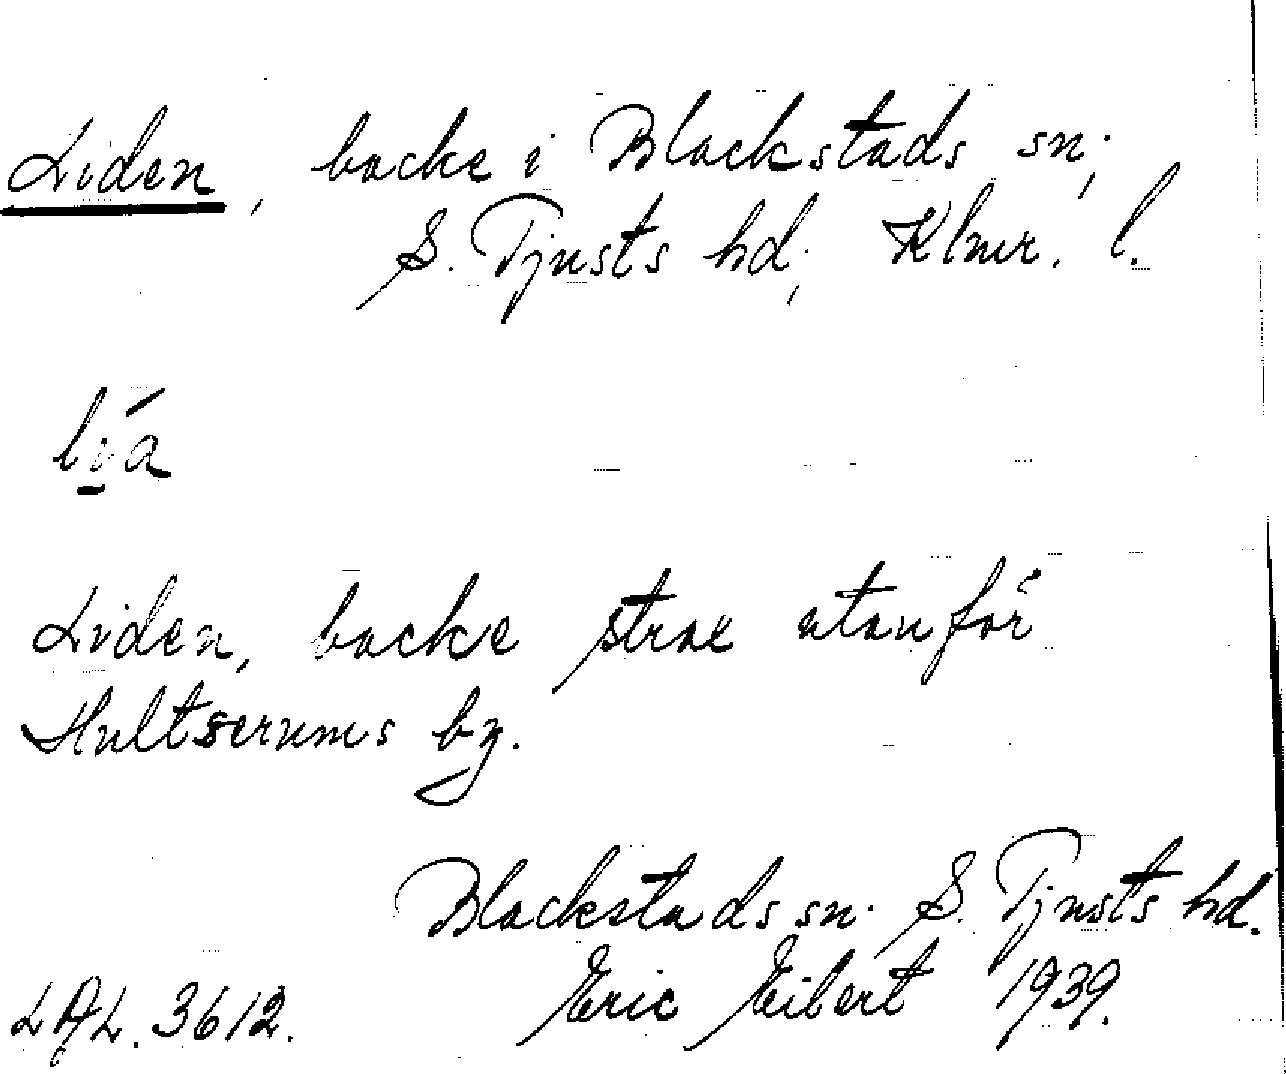 Liden, backe i Blackstads sn;
S. Tjusts hd; Klmr. l.
li̱´a
Liden, backe strax utanför
Hultserums by.
Blackstads sn. S. Tjusts hd.
LAL. 3612. Eric Eibert 1939.